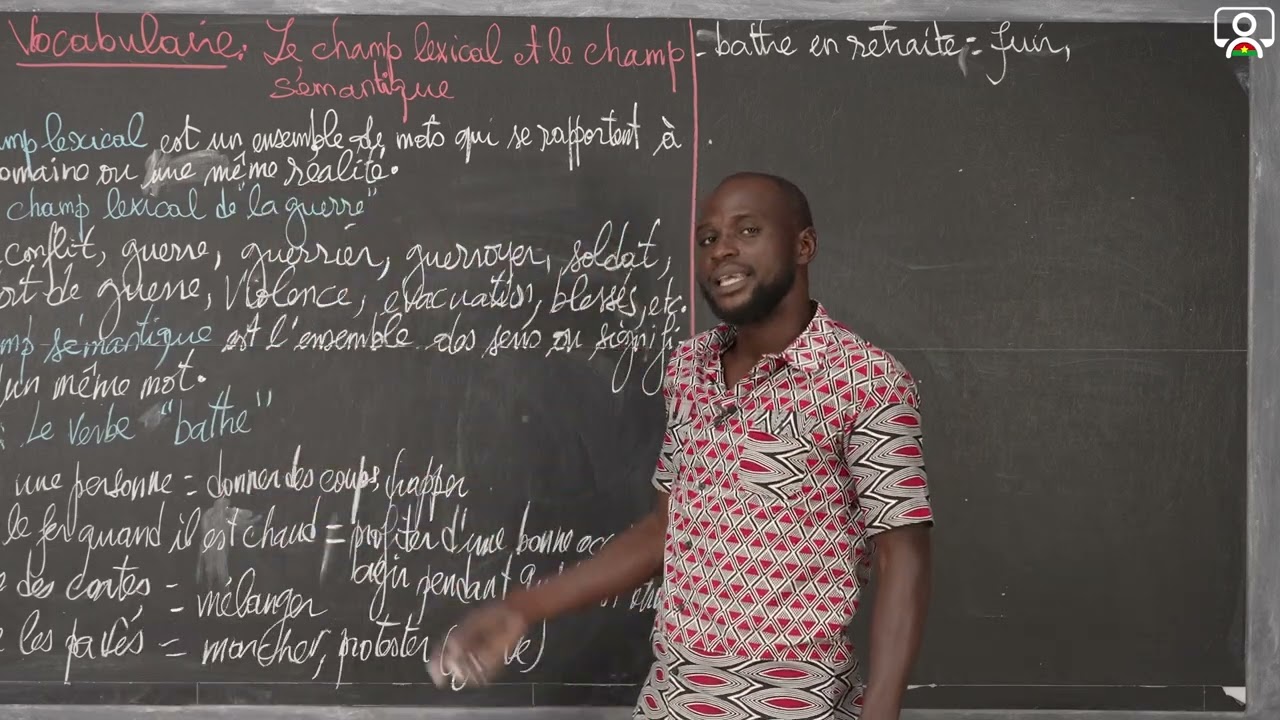 Vocabulaire: Le champ lexical et le champ
sémantique
amp lexical est un ensemble de mots qui se rapportent à
omaine ou une même réalité.
champ lexical de "la guerre"
conflit, guerre, guerrier, guerroyer, soldat,
ort de guerre, Violence, évacuation, blessés, etc.
mp sémantique est l'ensemble des sens ou signifi-
d'un même mot.
: Le verbe "battre"
une personne = donner des coups, frapper
le fer quand il est chaud = profiter d'une bonne occ
agir pendant
e des cartes = mélanger
e les pavés = marcher, protester
- battre en retraite = fuir,